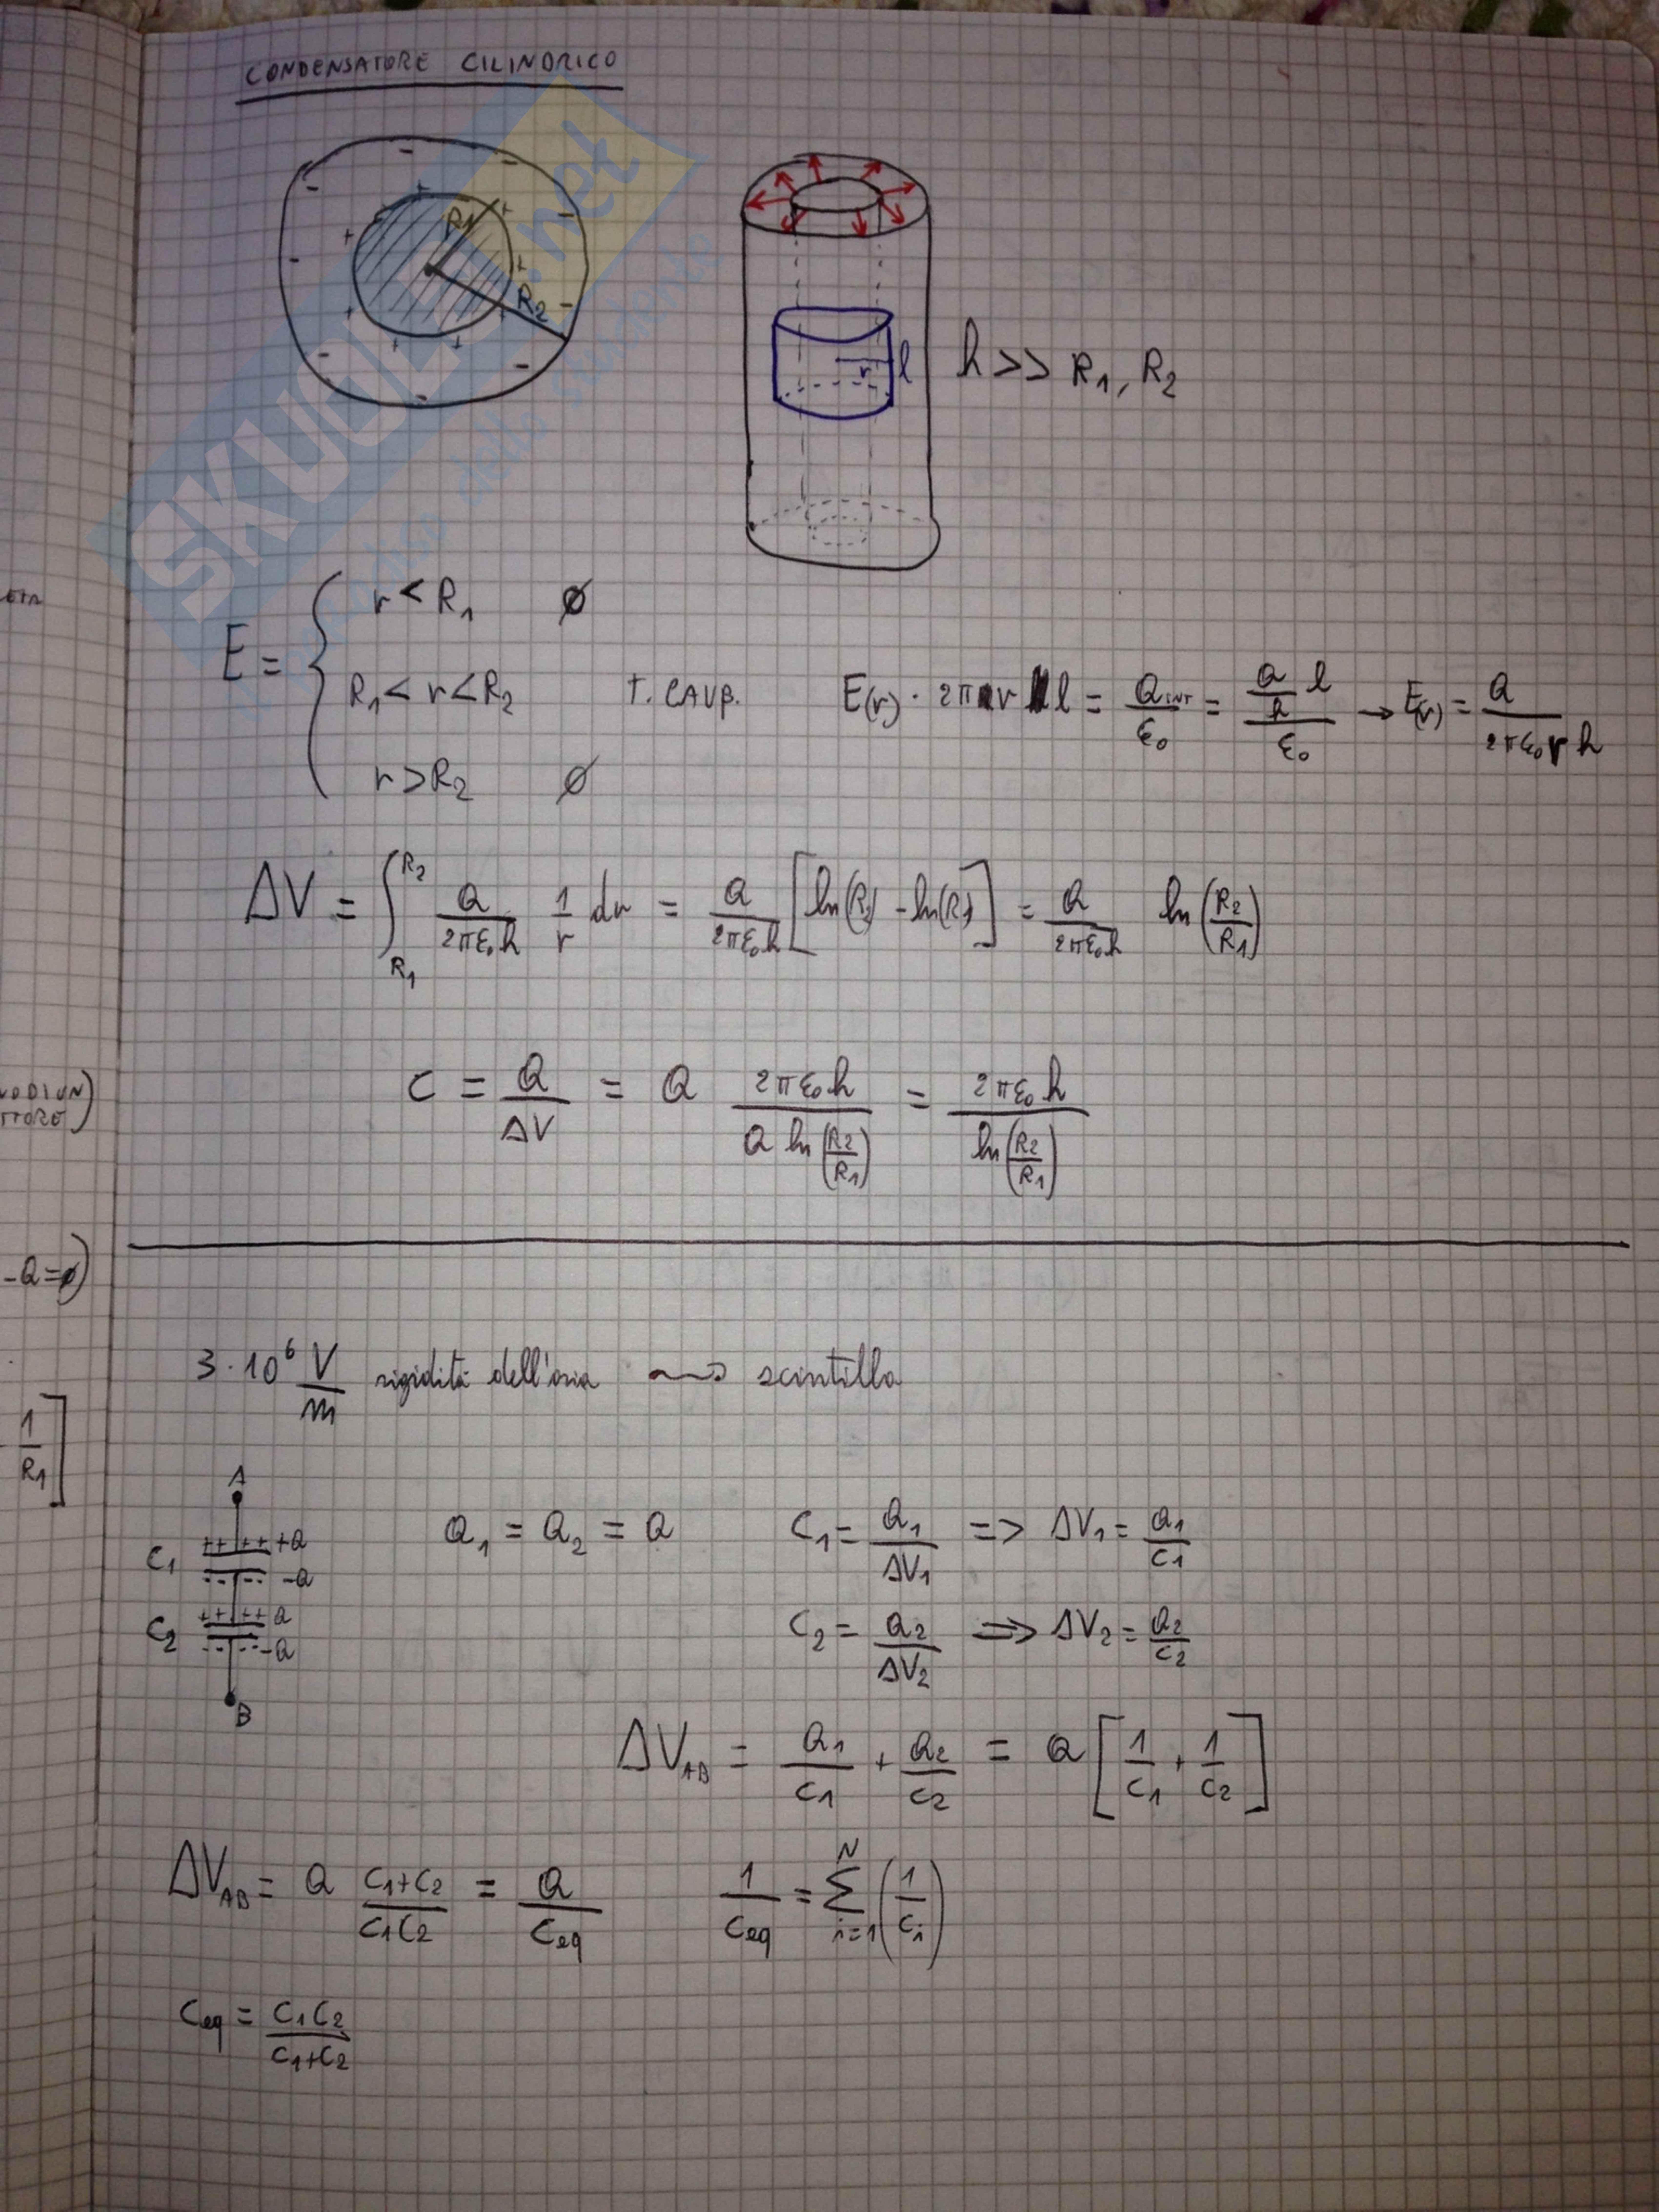 CONDENSATORE CILINDRICO
SKUOLA.net
paradiso dello studente
R1
R2
r l
h >> R1, R2
E = { r < R1 ∅
R1 < r < R2 T. GAUß. E(r) · 2π r l = QINT/ε0 = (Q/h l)/ε0 → E(r) = Q/(2πε0 r h)
r > R2 ∅
ΔV = ∫_{R1}^{R2} Q/(2πε0h) 1/r dr = Q/(2πε0h) [ln(R2) - ln(R1)] = Q/(2πε0h) ln(R2/R1)
C = Q/ΔV = Q 2πε0h/(Q ln(R2/R1)) = 2πε0h/ln(R2/R1)
TTORE)
-Q=∅)
1/R1]
3·10^6 V/m rigidità dell'aria ⇝ scintilla
A
C1 ++ ++ +Q
-- -- -Q
C2 ++ ++ Q
-- -- -Q
B
Q1 = Q2 = Q
C1 = Q1/ΔV1 => ΔV1 = Q1/C1
C2 = Q2/ΔV2 => ΔV2 = Q2/C2
ΔVAB = Q1/C1 + Q2/C2 = Q [1/C1 + 1/C2]
ΔVAB = Q (C1+C2)/(C1C2) = Q/Ceq 1/Ceq = Σ_{i=1}^{N} (1/Ci)
Ceq = C1C2/(C1+C2)